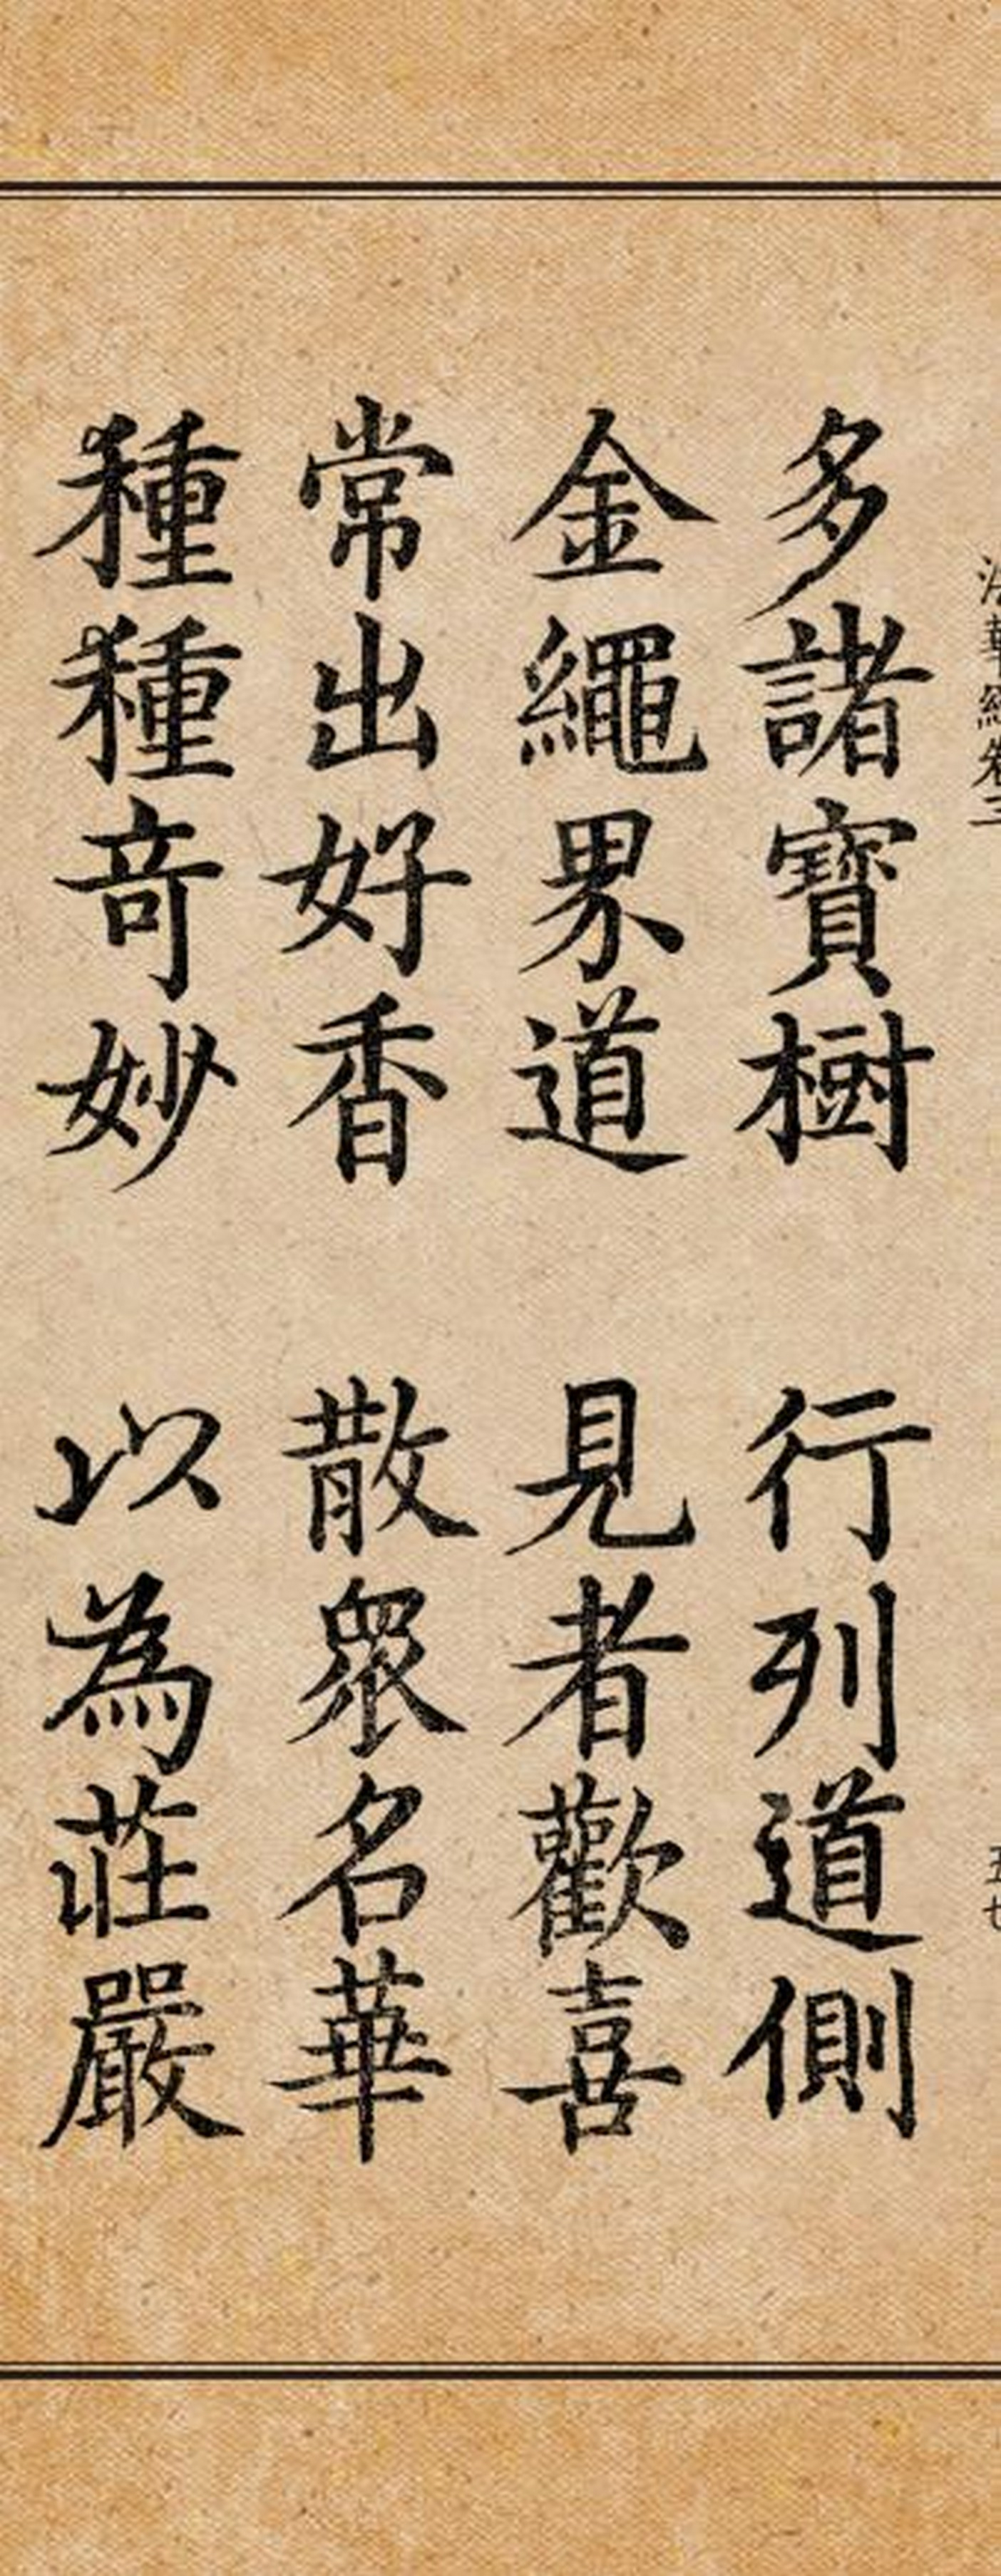 法華經卷三 五七
多諸寶樹 行列道側
金繩界道 見者歡喜
常出好香 散眾名華
種種奇妙 以為莊嚴